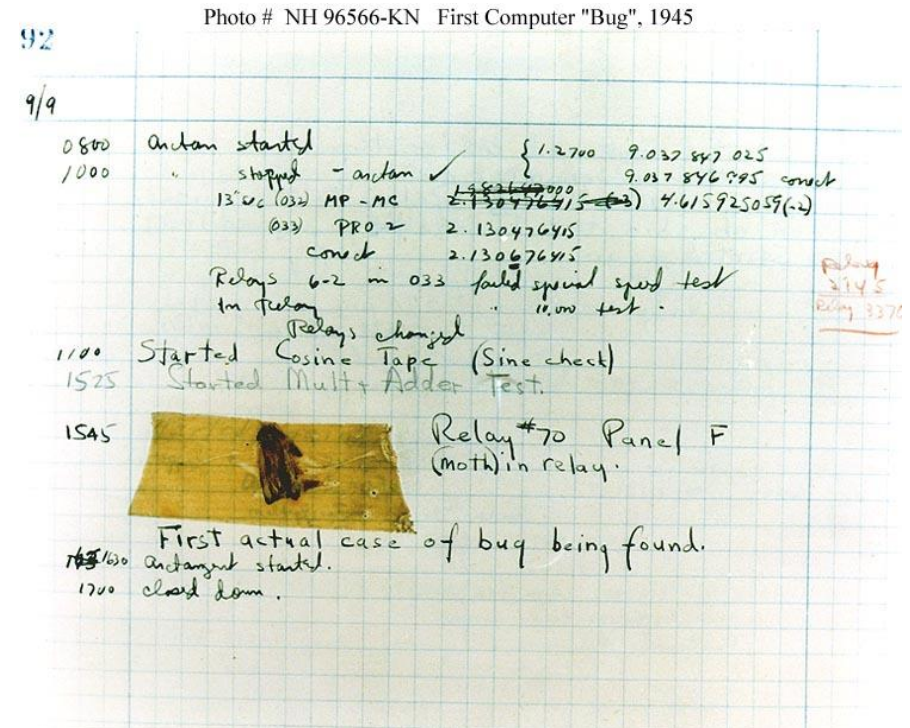 Photo # NH 96566-KN First Computer "Bug", 1945
92
9/9
0800 Antan started
1000 " stopped - antan ✓ { 1.2700 9.037 847 025
9.037 846 995 correct
13" uc (032) MP - MC 2.130476415 (-3) 4.615925059(-2)
(033) PRO 2 2.130476415
correct 2.130676415
Relays 6-2 in 033 failed special speed test
In Relay " 10,000 test.
Relays changed
Relay
2145
Relay 3370
1100 Started Cosine Tape (Sine check)
1525 Started Mult + Adder Test.
1545 Relay #70 Panel F
(moth) in relay.
First actual case of bug being found.
1630 arctangent started.
1700 closed down.